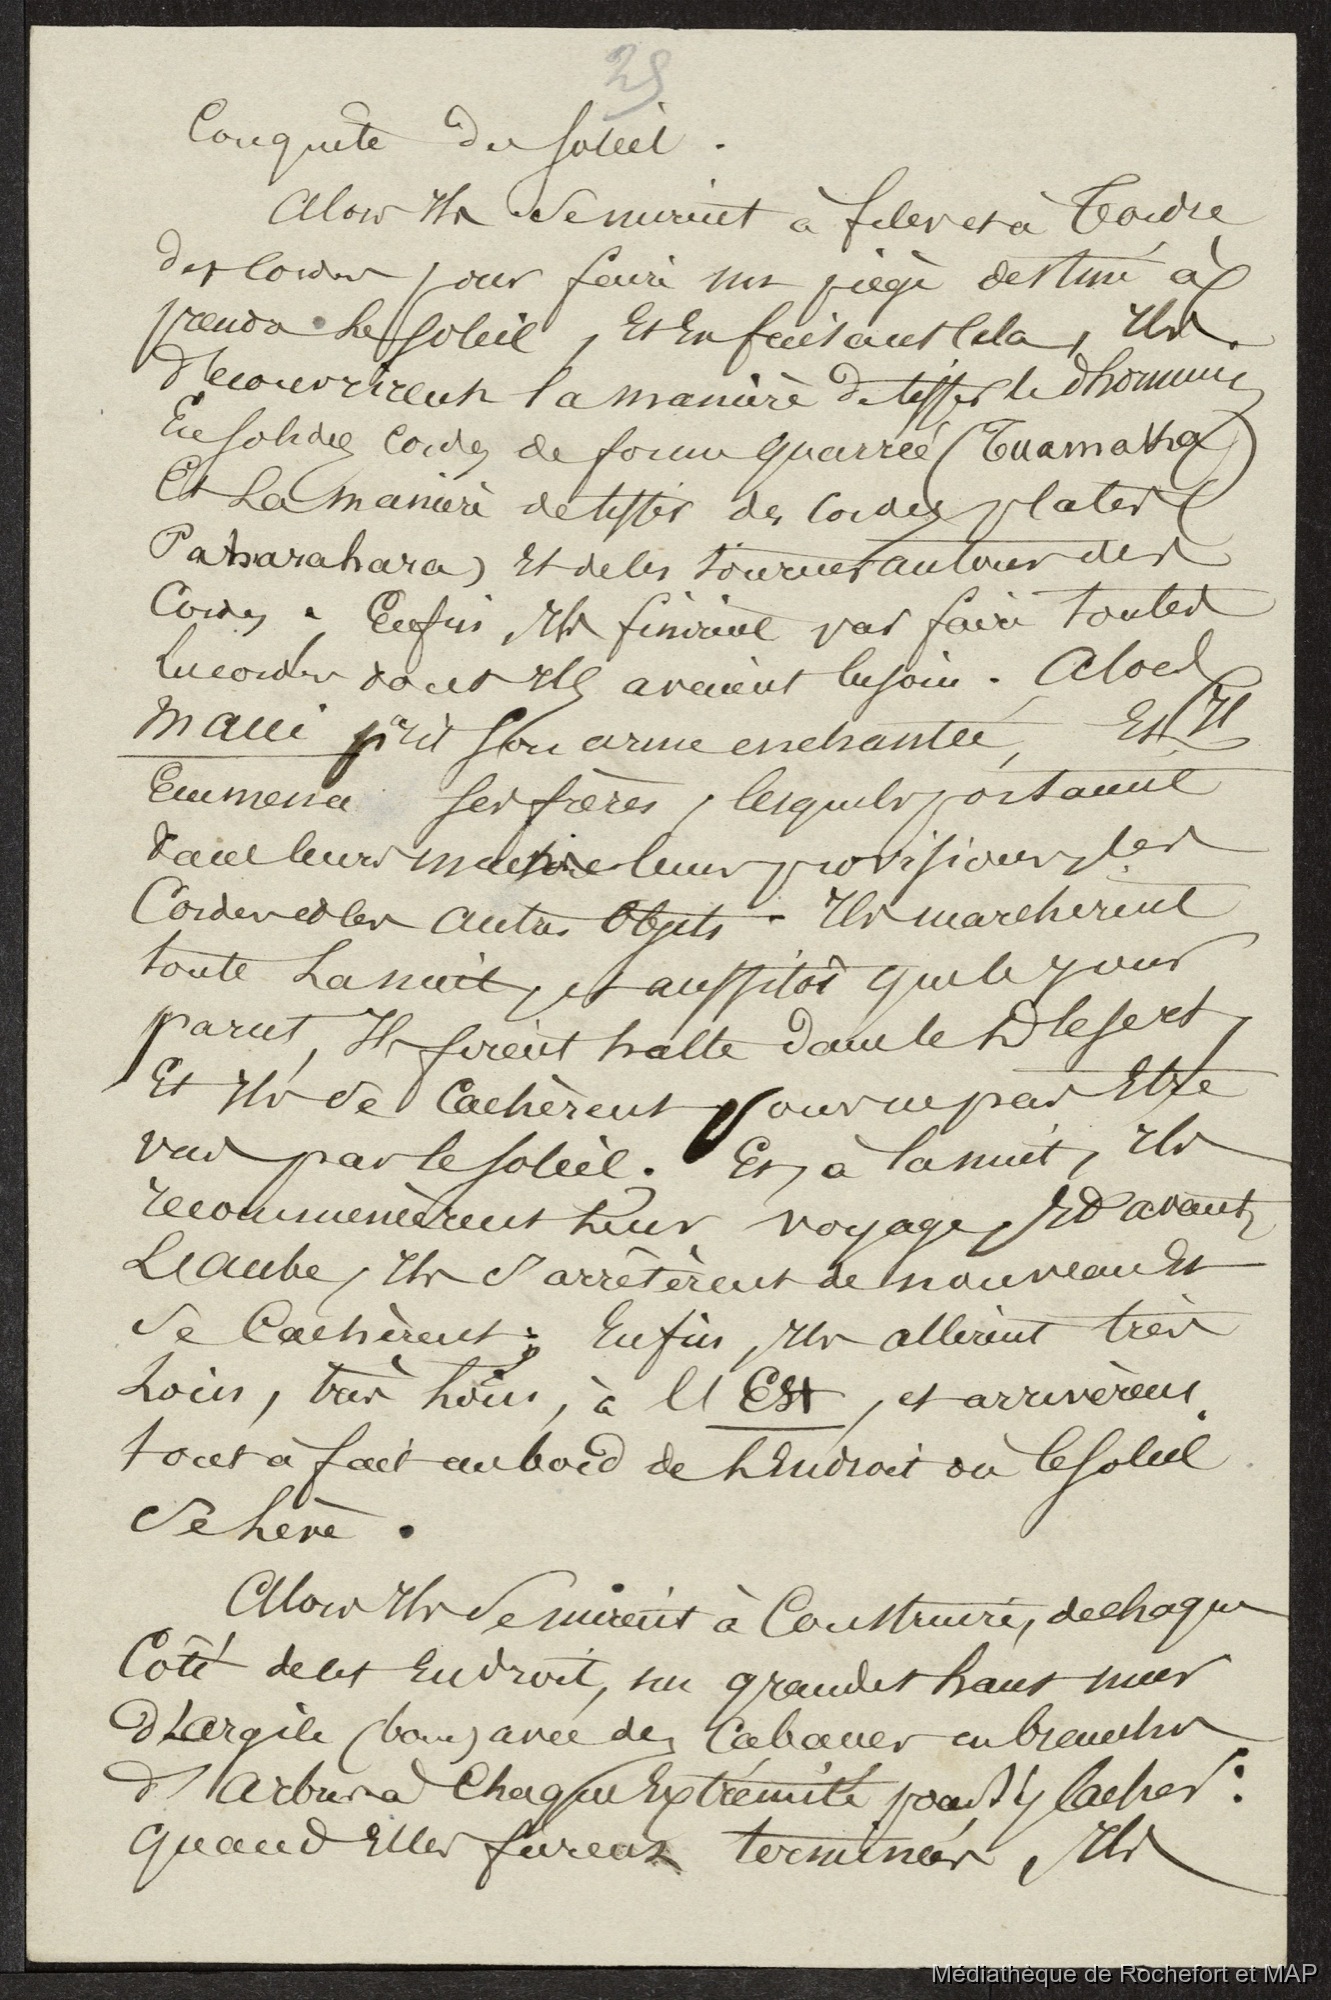 25
Conquête du Soleil.
Alors Ils se mirent à filer et à Tordre
des Cordes pour faire un piège destiné à
prendre Le Soleil, Et En faisant Cela, Ils
découvrirent la manière de tisser le
En solides Cordes de forme quarrée (Tuamaka)
Et La manière de tisser des Cordes plates (
Paharahara) Et de les tourner autour des
Cordes. Enfin, Ils finirent par faire toutes
les cordes dont Ils avaient besoin. Alors
Maui prit Son arme enchantée, Et Il
Emmena Ses frères, lesquels portaient
dans leurs mains leurs provisions, les
Cordes et les autres Objets. Ils marchèrent
toute La nuit, et aussitôt que le jour
parut, Ils firent halte dans le Désert,
Et Ils se Cachèrent pour ne pas Etre
vus par le Soleil. Et, à la nuit, Ils
recommencèrent leur voyage, Et avant
L'aube, Ils s'arrêtèrent de nouveau Et
se Cachèrent; Enfin, Ils allèrent très
Loin, très Loin, à l'Est, et arrivèrent
tout à fait au bord de L'Endroit où le Soleil
se Lève.
Alors Ils se mirent à Construire, de chaque
Côté de cet Endroit, un grand et haut mur
d'argile (boue) avec des Cabanes en branches
d'Arbres à Chaque Extrémité pour s'y cacher:
quand Elles furent terminées, Ils
Médiathèque de Rochefort et MAP